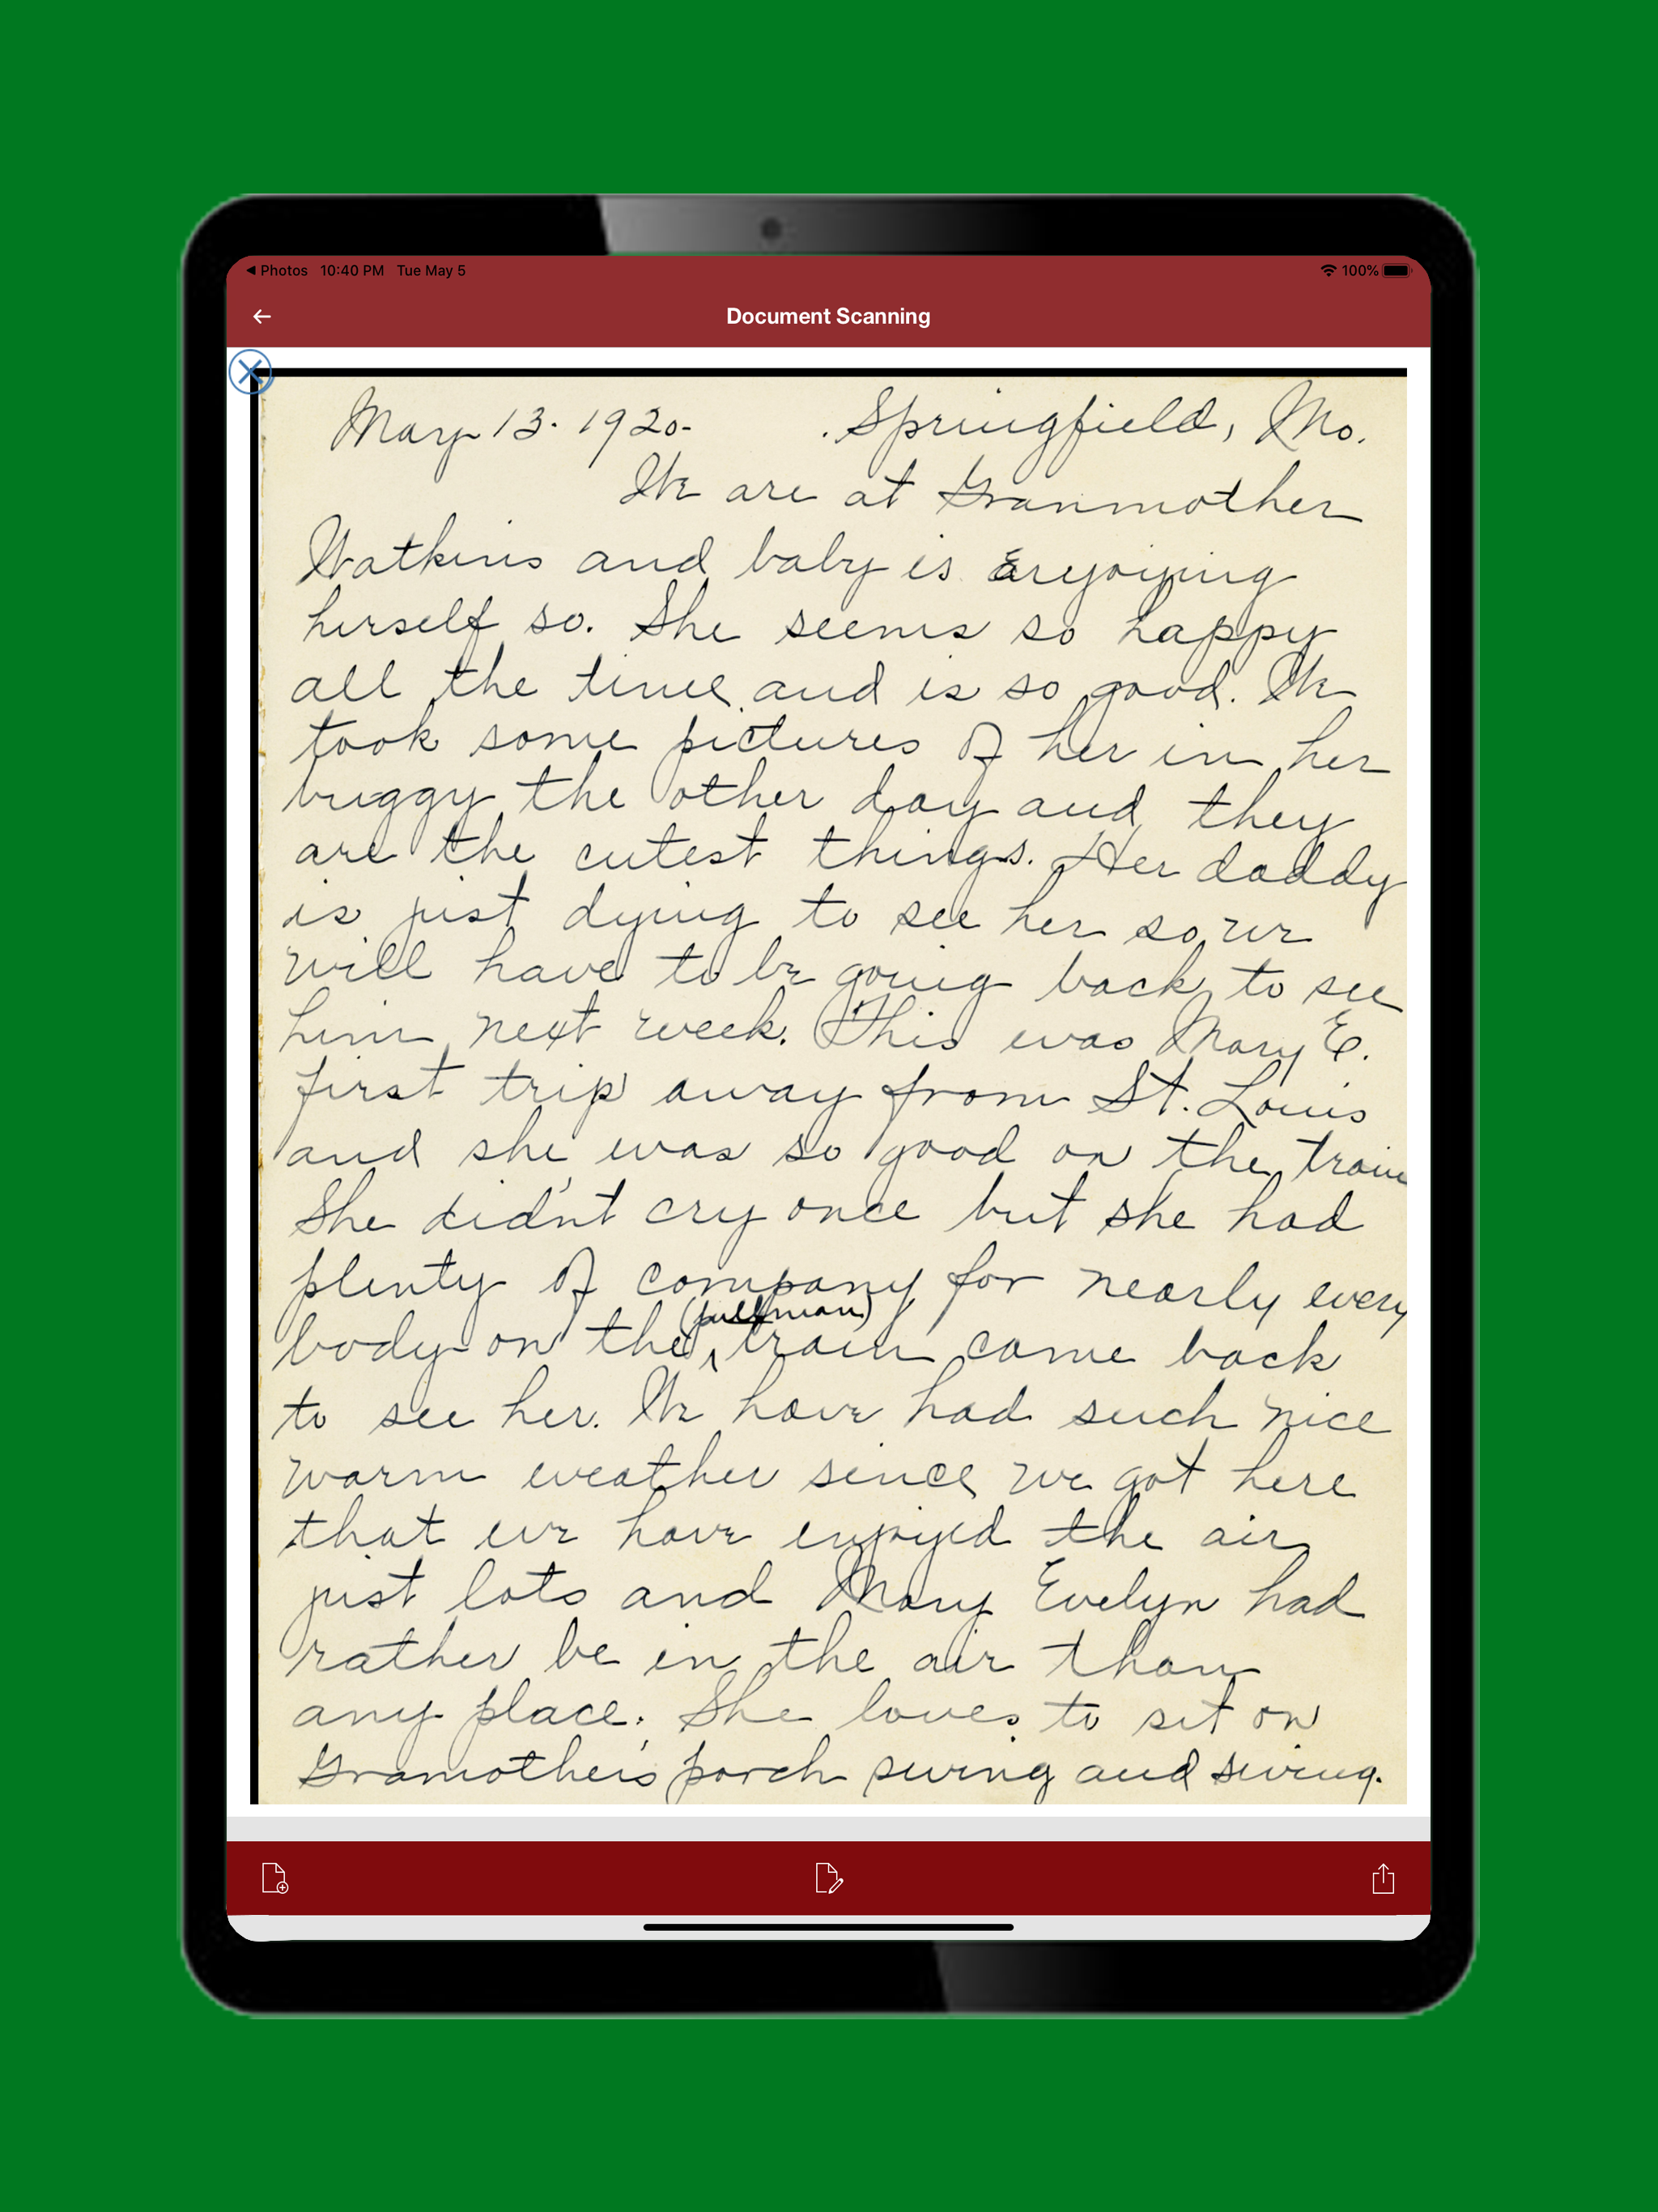 Photos 10:40 PM Tue May 5 100%
Document Scanning
May 13. 1920. Springfield, Mo.
We are at Granmother
Watkins and baby is enjoying
herself so. She seems so happy
all the time and is so good. We
took some pictures of her in her
buggy the other day and they
are the cutest things. Her daddy
is just dying to see her so we
will have to be going back to see
him next week. This was Mary E.
first trip away from St. Louis
and she was so good on the train
She didn't cry once but she had
plenty of company for nearly every
(pullman)
body on the train came back
to see her. We have had such nice
warm weather since we got here
that we have enjoyed the air
just lots and Mary Evelyn had
rather be in the air than
any place. She loves to sit on
Gramother's porch swing and swing.